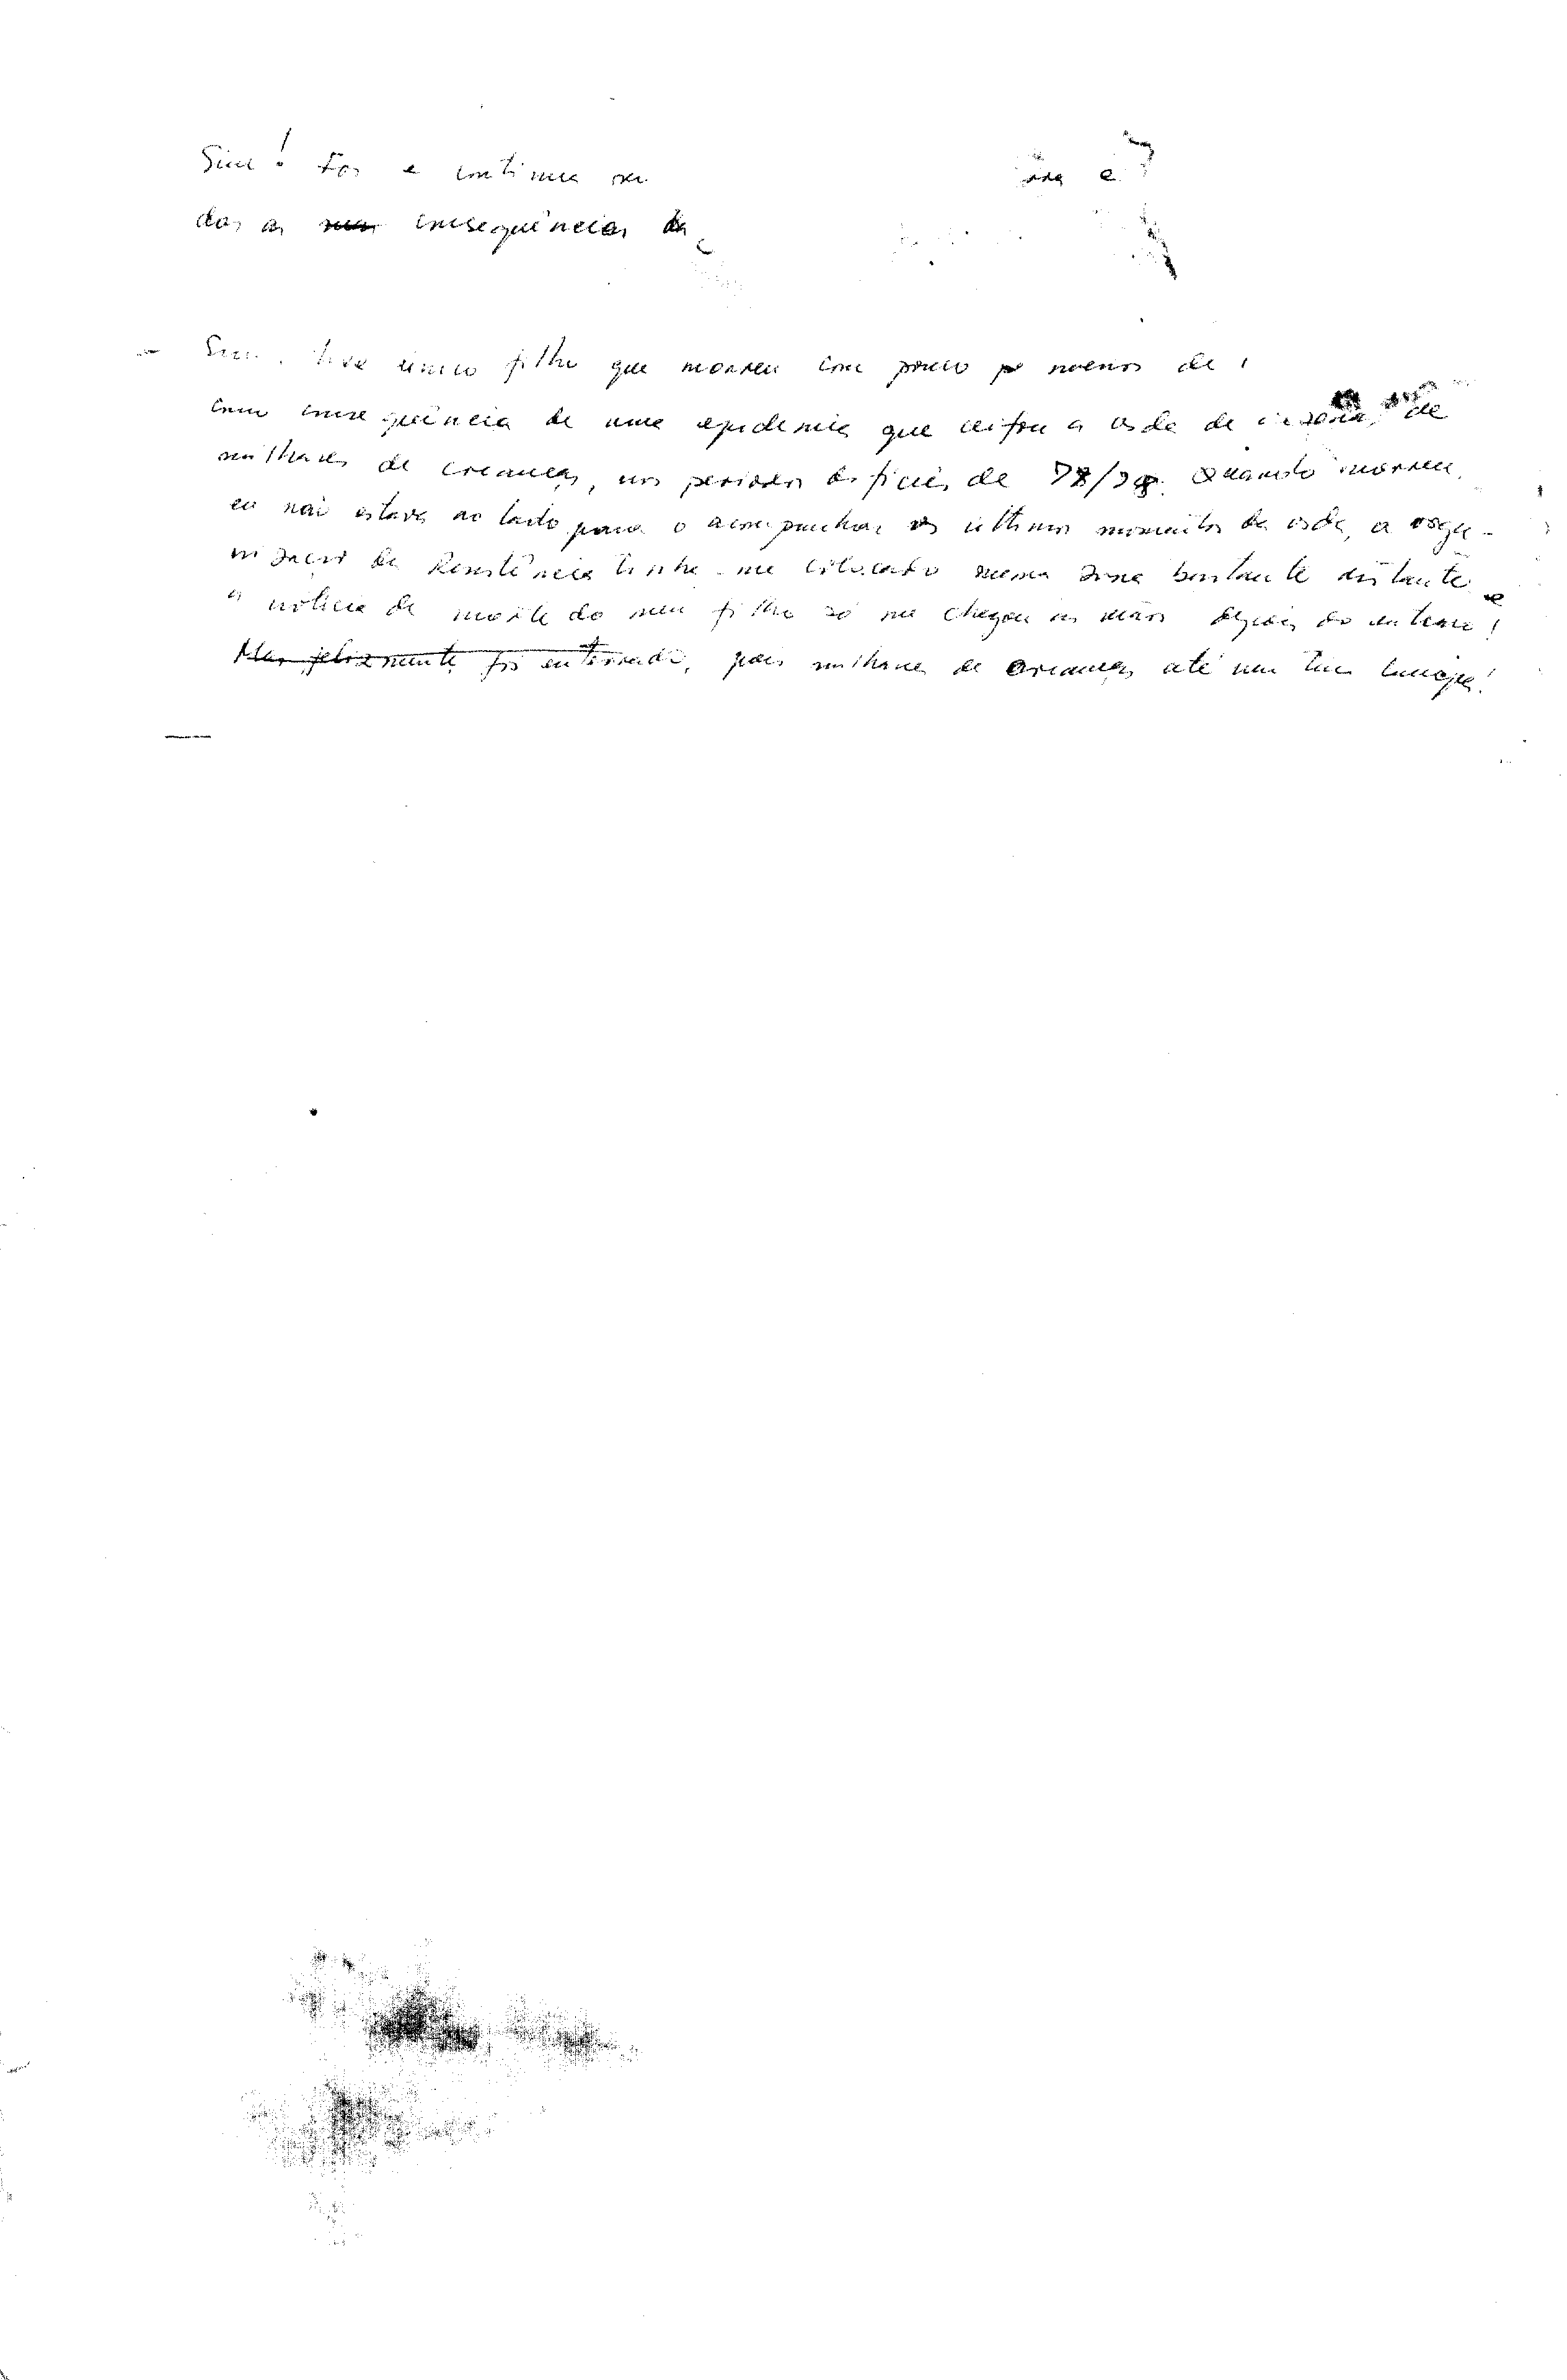 Sim! Foi e continua
das as consequências da
- Sim. Tive único filho que morreu com pouco menos de
com consequência de uma epidemia que ceifou a vida de de
milhares de crianças, nos periodos dificeis de 78/79. Quando morreu,
eu não estava ao lado para o acompanhar os ultimos momentos da vida, a orga-
nização da Resistência tinha-me colocado numa zona bastante distante e
a noticia da morte do meu filho só me chegou as mãos depois do enterro!
Mas felizmente foi enterrado, pois milhares de crianças até nem têm campa!